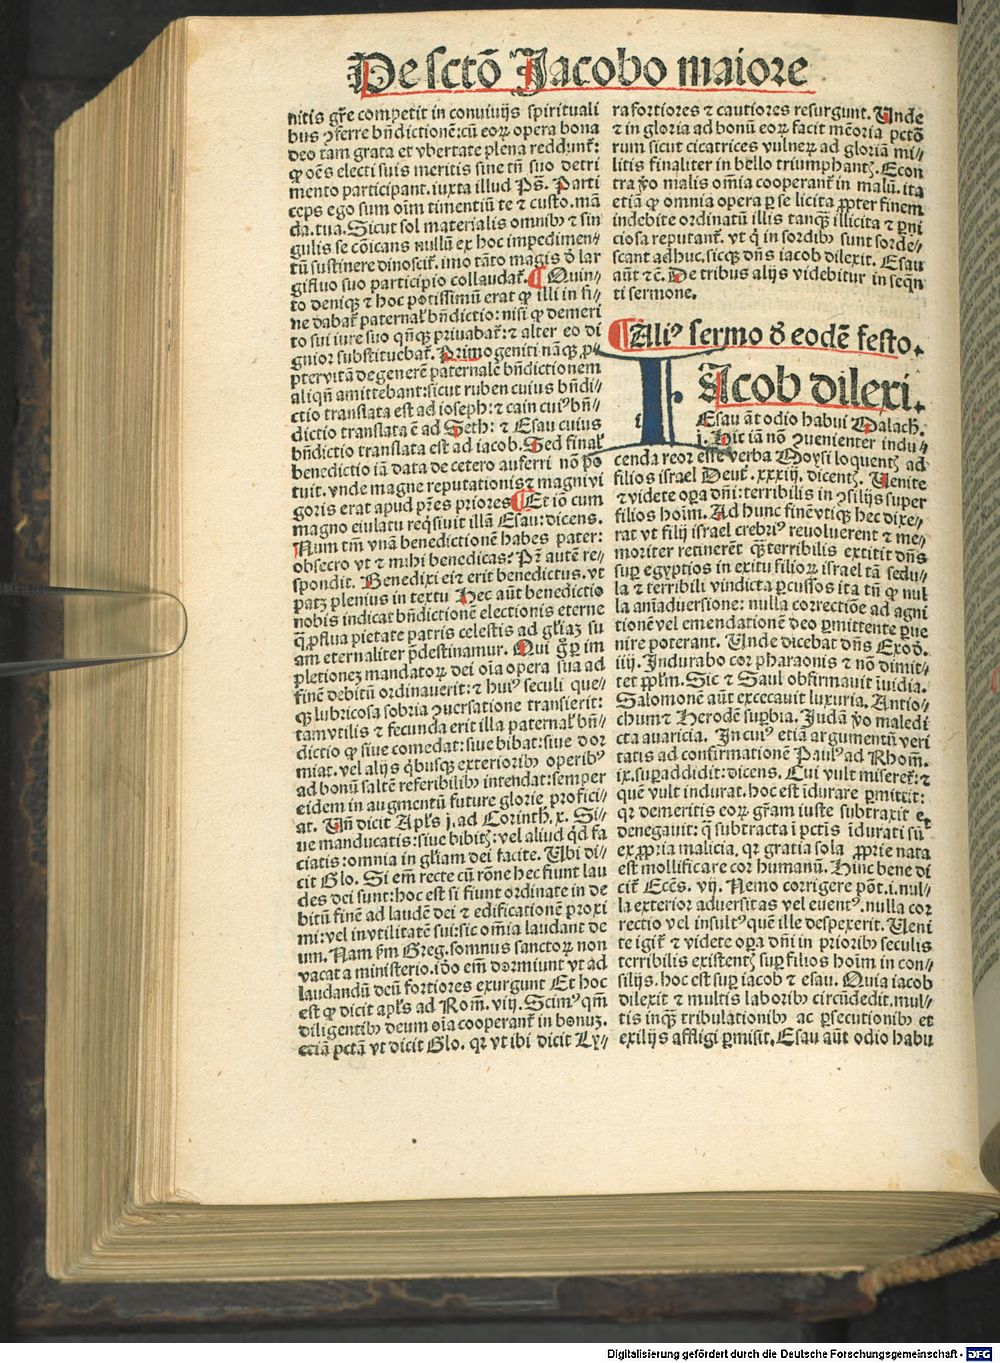 De sctō Jacobo maiore
nitis gr̄e competit in conuiuijs spirituali
bus ꝯferre bn̄dictionē:cū eoꝝ opera bona
deo tam grata et vbertate plena reddunt̄:
ꝙ oēs electi suis meritis sine tn̄ suo detri
mento participant.iuxta illud Ps̄. Parti
ceps ego sum oīm timentiū te ⁊ custo.mā
da.tua.Sicut sol materialis omnibꝰ ⁊ sin
gulis se cōicans nullū ex hoc impedimen⸗
tū sustinere dinoscit̄.imo tāto magis ð lar
gifluo suo participio collaudat̄.¶Quin⸗
to deniqꝫ ⁊ hoc potissimū erat ꝙ illi in fi⸗
ne dabat̄ paternal̄ bn̄dictio:nisi ꝙ demeri
to sui iure suo qn̄qꝫ priuabat̄:⁊ alter eo di
gnior substituebat̄.Primogeniti nāqꝫ.ꝓ⸗
pter vitā degenerē paternalē bn̄dictionem
aliqn̄ amittebant:sicut ruben cuius bn̄di⸗
ctio translata est ad ioseph:⁊ cain cuiꝰ bn̄⸗
dictio translata ē ad Seth:⁊ Esau cuius
bn̄dictio translata est ad iacob.Sed final̄
benedictio iā data de cetero auferri nō po
tuit.vnde magne reputationis ⁊ magni vi
goris erat apud pr̄es priores ¶Et iō cum
magno eiulatu reqsiuit illā Esau:dicens.
Num tm̄ vnā benedictionē habes pater:
obsecro vt ⁊ mihi benedicas? Pr̄ autē re⸗
spondit. Benedixi ei ⁊ erit benedictus.vt
patꝫ plenius in textu Hec aūt benedictio
nobis indicat bn̄dictionē electionis eterne
qꝫ ꝓflua pietate patris celestis ad gl̄iaꝫ su
am eternaliter p̄destinamur. Qui gͦ ꝑ im
pletionez mandatoꝝ dei oīa opera sua ad
finē debitū ordinauerit:⁊ huiꝰ seculi que⸗
qꝫ lubricosa sobria ꝯuersatione transierit:
tam vtilis ⁊ fecunda erit illa paternal̄ bn̄⸗
dictio ꝙ siue comedat:siue bibat:siue dor
miat.vel alijs qbusqꝫ exterioribꝰ operibꝰ
ad bonū saltē referibilibꝰ intendat:semper
eidem in augmentū future glorie profici⸗
at. Vn̄ dicit Apl̄s j.ad Corinth.x. Si⸗
ue manducatis:siue bibitꝭ:vel aliud qd fa
ciatis:omnia in gl̄iam dei facite. Vbi di⸗
cit Glo. Si em̄ recte cū rōne hec fiunt lau
des dei sunt:hoc est si fiunt ordinate in de
bitū finē ad laudē dei ⁊ edificationē proxi
mi:vel in vtilitatē sui:sic om̄ia laudant de
um.Nam s̄m Greg.somnus sanctoꝝ non
vacat a ministerio.ido em̄ dormiunt vt ad
laudandū deū fortiores exurgunt Et hoc
est ꝙ dicit apl̄s ad Rom̄.viij.Scimꝰ qm̄
diligentibꝰ deum oīa cooperant̄ in bonuꝫ.
etiā pctā vt dicit Glo. qꝛ vt ibi dicit Ly⸗
ra fortiores ⁊ cautiores resurgunt. Vnde
⁊ in gloria ad bonū eoꝝ facit mēoria pctō
rum sicut cicatrices vulneꝝ ad gloriā mi⸗
litis finaliter in bello triumphantꝭ.Econ
tra ꝟo malis om̄ia cooperant̄ in malū.ita
etiā ꝙ omnia opera ꝑ se licita ꝓpter finem
indebite ordinatū illis tanqꝫ illicita ⁊ ꝑni
ciosa reputant̄. vt q in sordibꝰ sunt sorde⸗
scant adhuc.sicqꝫ dn̄s iacob dilexit. Esau
aūt ⁊c̄. De tribus alijs videbitur in seqn̄
ti sermone.
¶Aliꝰ sermo ð eodē festo.
IAcob dilexi.
Esau āt odio habui Malach.
j. Hic iā nō ꝯuenienter indu⸗
cenda reor esse verba Moysi loquentꝭ ad
filios israel Deut̄.xxxiij.dicentꝭ. Venite
⁊ videte oꝑa dn̄i:terribilis in ꝯsilijs super
filios hoīm. Ad hunc finē vtiqꝫ hec dixe⸗
rat vt filij israel crebriꝰ reuoluerent ⁊ me⸗
moriter retinerēt qꝫ terribilis extitit dn̄s
suꝑ egyptios in exitu filioꝝ israel tā sedu⸗
la ⁊ terribili vindicta ꝑcussos ita tn̄ ꝙ nul
la anīaduersione: nulla correctiōe ad agni
tionē vel emendationē deo ꝑmittente ꝑue
nire poterant. Unde dicebat dn̄s Exod̄.
iiij. Indurabo cor pharaonis ⁊ nō dimit⸗
tet ppl̄m. Sic ⁊ Saul obfirmauit īuidia.
Salomonē aūt excecauit luxuria. Antio⸗
chum ⁊ Herodē suꝑbia. Judā ꝟo maledi
cta auaricia. In cuiꝰ etiā argumentū veri
tatis ad confirmationē Paulꝰ ad Rhom̄.
ix.suꝑaddidit:dicens. Cui vult miseret̄:⁊
quē vult indurat.hoc est īdurare ꝑmittit:
qꝛ demeritis eoꝝ gr̄am iuste subtraxit et
denegauit: q̄ subtracta ī pctīs īdurati sūt
ex ꝓpria malicia, qꝛ gratia sola ꝓprie nata
est mollificare cor humanū. Hinc bene di
cit̄ Ecēs. vij. Nemo corrigere pōt.i.nul⸗
la exterior aduersitas vel euentꝰ.nulla cor
rectio vel insultꝰ quē ille despexerit. Veni
te igit̄ ⁊ videte oꝑa dn̄i in prioribꝰ seculis
terribilis existentꝭ suꝑ filios hoīm in con⸗
silijs.hoc est suꝑ iacob ⁊ esau. Quia iacob
dilexit ⁊ multis laboribꝰ circūdedit.mul⸗
tis inqꝫ tribulationibꝰ ac ꝑsecutionibꝰ et
exilijs affligi ꝑmisit.Esau aūt odio habu
Digitalisierung gefördert durch die Deutsche Forschungsgemeinschaft - DFG